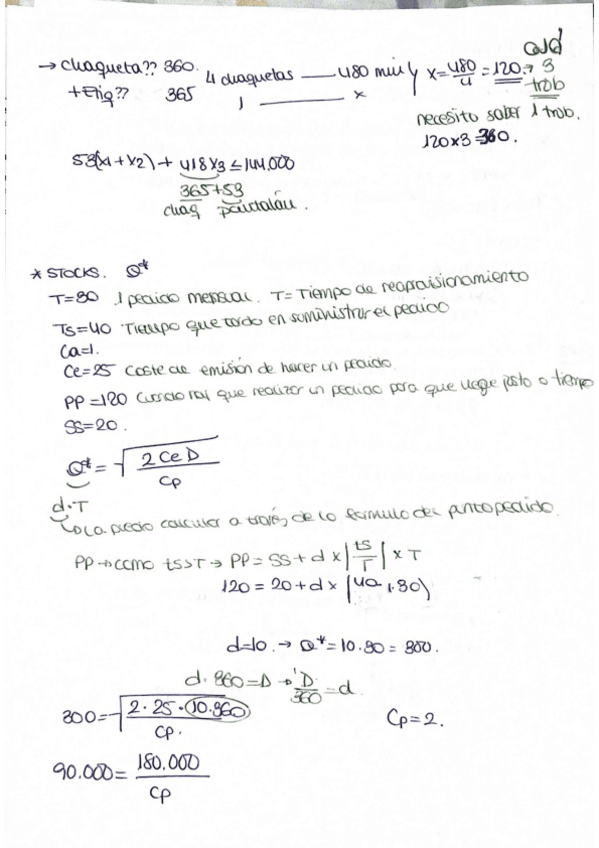 cold
→ chaqueta?? 360. 4 chaquetas — 480 min } x = 480/4 = 120 → 3 trab
+ Etiq?? 365 1 — x
necesito saber 1 trab.
120x3 = 360.
53(x1+x2) + 418x3 ≤ 144.000
365+53
chaq pantalón.
* STOCKS. Q*
T=30 1 pedido mensual. T= Tiempo de reaprovisionamiento
Ts=40 Tiempo que tardo en suministrar el pedido
Ca=1.
Ce=25 Coste de emisión de hacer un pedido.
PP=120 Cuando hay que realizar un pedido para que llegue justo a tiempo
SS=20.
Q* = √(2 Ce D / Cp)
d·T
↳ La puedo calcular a través de la fórmula del punto pedido.
PP → como ts>T → PP = SS + d x |ts/T| x T
120 = 20 + d x (40 , 30)
d=10. → Q* = 10·30 = 300.
d·360 = D → D/360 = d.
300 = √(2·25·(10·360) / Cp.) Cp=2.
90.000 = 180.000 / Cp